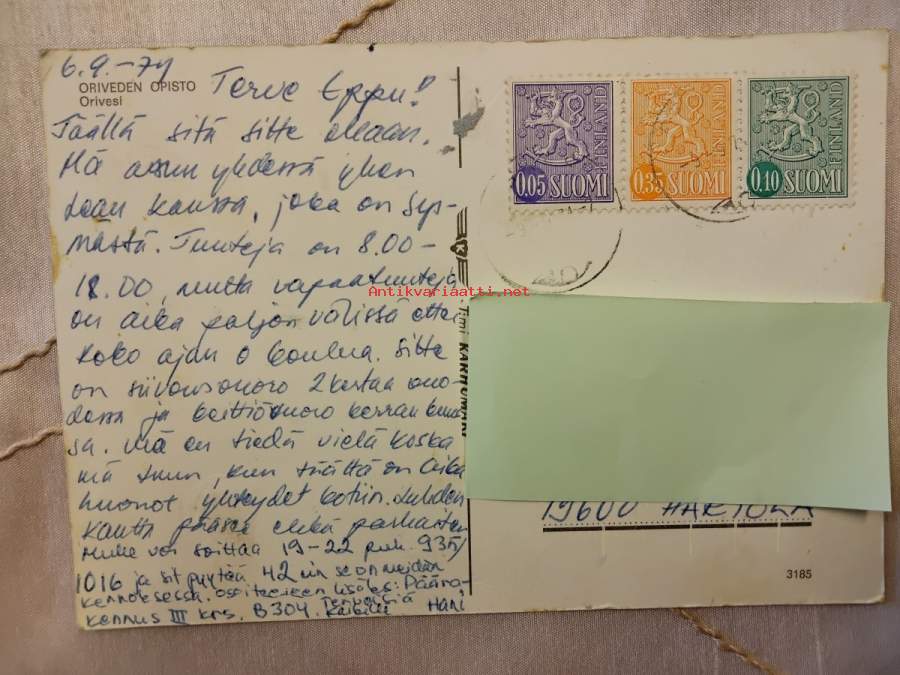 6.9.-74
ORIVEDEN OPISTO
Orivesi
Terve Eppu!
Täällä sitä sitte ollaan.
Mä asun yhdessä yhen
kaan kanssa, joka on Sys-
mästä. Tunteja on 8.00-
18.00, mutta vapaatunteja
on aika paljon välissä ettei
koko ajan o koulua. Sitte
on siivousvuoro 2 kertaa
dessa ja keittiövuoro kerran kuus-
sa. Mä en tiedä vielä koska
mä tuun, kun täältä on aika
huonot yhteydet kotiin. Lahden
kautta pääsee ehkä parhaiten
Mulle voi soittaa 19-22 puh. 935/
1016 ja sit pyytää 42 niin se on meidän
kennuksessa. osoitteeseen lisäks: Päära-
kennus III krs. B304. Terveisiä
Kaikille Hani
Timi KARHUMÄKI
K
0.05 SUOMI FINLAND
0.35 SUOMI FINLAND
0.10 SUOMI FINLAND
Antikvariaatti.net
19600 HARTOLA
3185